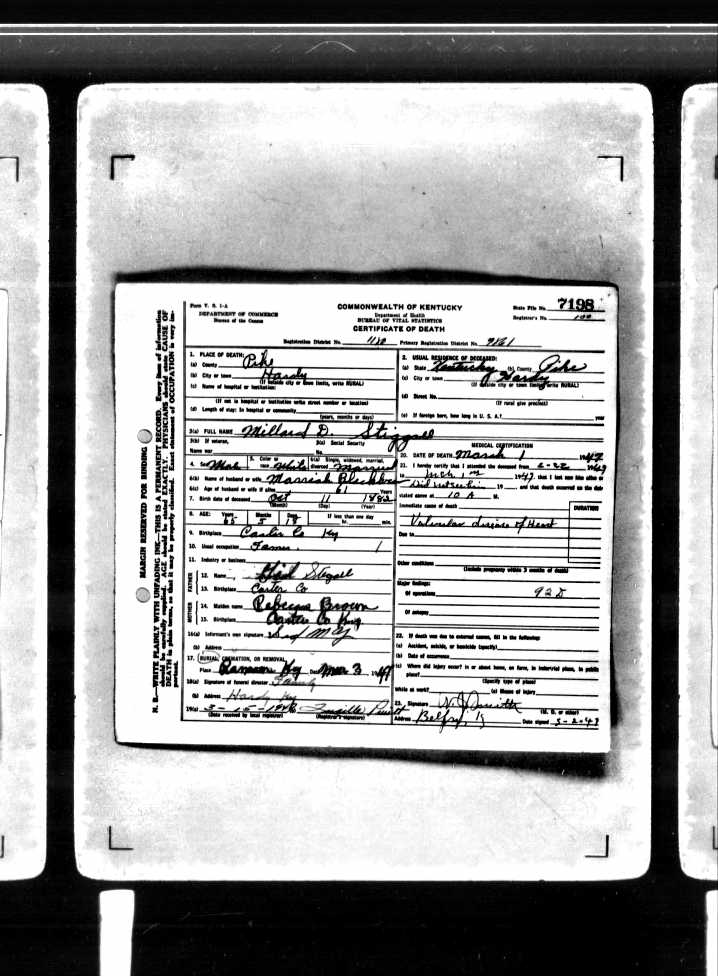 Form V. S. 1-A
DEPARTMENT OF COMMERCE
Bureau of the Census
COMMONWEALTH OF KENTUCKY
Department of Health
BUREAU OF VITAL STATISTICS
CERTIFICATE OF DEATH
State File No. 7198
Registrar's No. 100
Registration District No. 1180 Primary Registration District No. 7861
1. PLACE OF DEATH:
(a) County Pike
(b) City or town Hardy
(If outside city or town limits, write RURAL)
(c) Name of hospital or institution:
(If not in hospital or institution write street number or location)
(d) Length of stay: In hospital or community
(years, months or days)
2. USUAL RESIDENCE OF DECEASED:
(a) State Kentucky (b) County Pike
(c) City or town Hardy
(If outside city or town limits write RURAL)
(d) Street No.
(If rural give precinct)
(e) If foreign born, how long in U. S. A.? year
3(a) FULL NAME Millard D.
3(b) If veteran,
Name war
3(c) Social Security
No.
4. Sex Male 5. Color or race White 6(a) Single, widowed, married, divorced Married
6(b) Name of husband or wife
6(c) Age of husband or wife if alive 61 Years
7. Birth date of deceased Oct 11 1882
(Month) (Day) (Year)
8. AGE: Years 65 Months 5 Days 18 If less than one day
hr. min.
9. Birthplace Carter Co Ky
10. Usual occupation
11. Industry or business
FATHER
12. Name
13. Birthplace Carter Co
MOTHER
14. Maiden name Rebecca Brown
15. Birthplace Carter Co
16(a) Informant's own signature
(b) Address
17. BURIAL, CREMATION, OR REMOVAL
Place Ky Date Mar 3, 1947
18(a) Signature of funeral director Family
(b) Address Hardy Ky
19(a) 3-15-19
(Date received by local registrar) (Registrar's signature)
MEDICAL CERTIFICATION
20. DATE OF DEATH March 1 1947
21. I hereby certify that I attended the deceased from 2-22 1947
1947, that I last saw him alive on
19 and that death occurred on the date
stated above at 10 A M.
Immediate cause of death
DURATION
Valvular disease of Heart
Due to
Other conditions
(Include pregnancy within 3 months of death)
Major findings:
Of operations 92
Of autopsy
22. If death was due to external causes, fill in the following:
(a) Accident, suicide, or homicide (specify)
(b) Date of occurrence
(c) Where did injury occur? in or about home, on farm, in industrial place, in public
place?
(Specify type of place)
While at work? (e) Means of injury
23. Signature
(M. D. or other)
Address Belfry, Ky Date signed 3-2-47
MARGIN RESERVED FOR BINDING
N. B.—WRITE PLAINLY WITH UNFADING INK—THIS IS A PERMANENT RECORD. Every item of information
should be carefully supplied. AGE should be stated EXACTLY. PHYSICIANS should state CAUSE OF
DEATH in plain terms, so that it may be properly classified. Exact statement of OCCUPATION is very im-
portant.